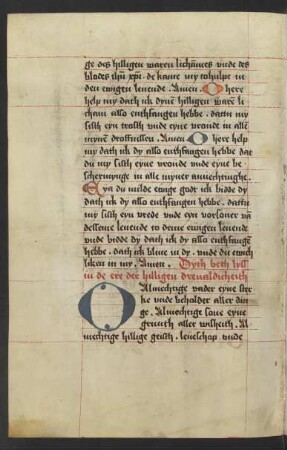 ge des hilligen waren lichames vnde des
blodes ihu xpi. de kame my to hulpe in
den ewigen leuende. Amen. O here
help my dath ik dyne hilligen ware li
cham also enthfangen hebbe. dattu my
sisth eyn trosth vnde eyne vroude in alle
myne droffnissen. Amen O here help
my dath ik dy also enthfangen hebbe dat
du my sisth eyne vroude vnde eyne be
schermynge in alle myner anuechtinghe
Eya du milde ewige godt ik bidde dy
dath ik dy also enthfangen hebbe. dattu
my sisth eyn vrede vnde eyn vorloner va
dessame leuende to deme ewigen leuende
vnde bidde dy dath ik dy also enthfange
hebbe. dath ik bliue in dy. vnde du ewich
liken in my. Amen. Dyth beth lesz
in de ere der hilligen dreualdicheith
O Almechtige vader eyne ster
ke vnde beholder aller din
ge. Almechtige sone eyne
grunth aller wisheith. Al
mechtige hillige geisth. leueschap. vnde